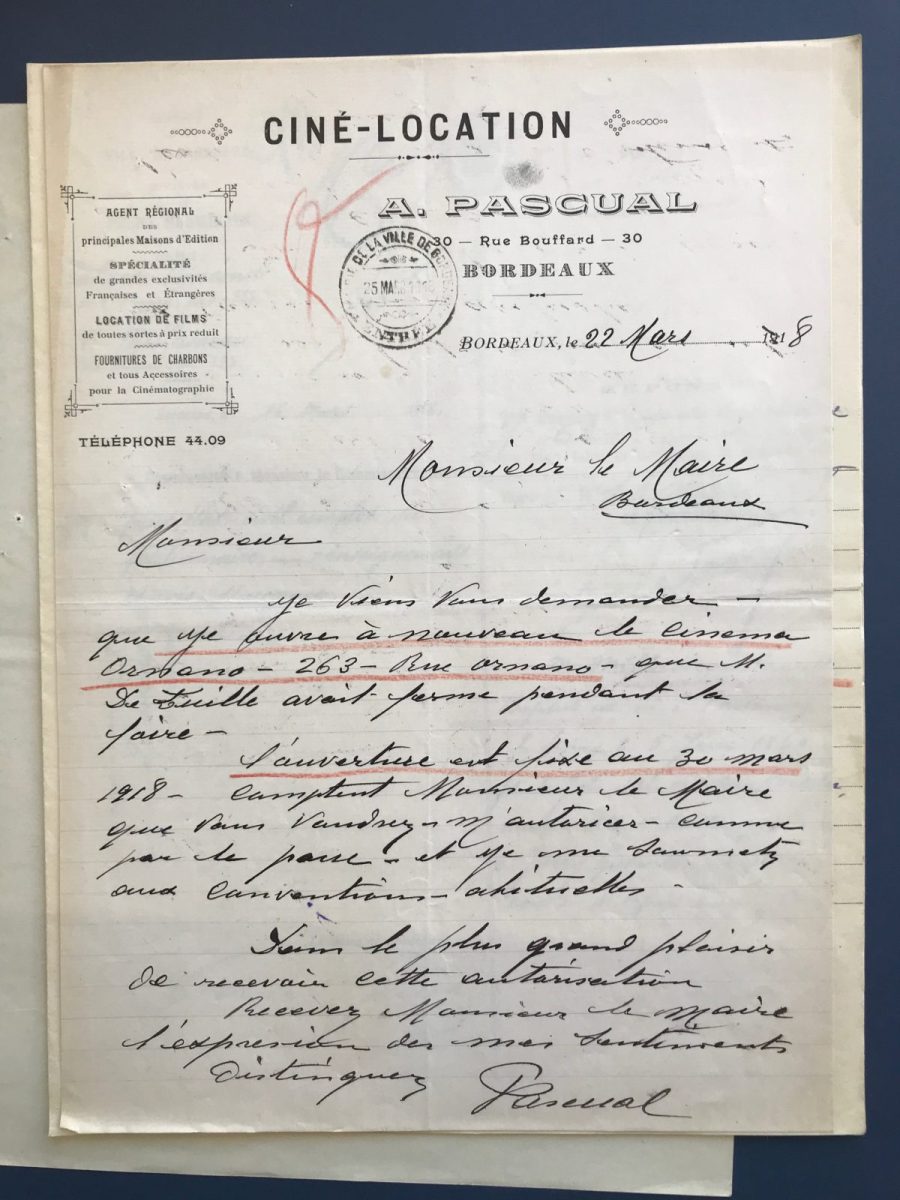 CINÉ-LOCATION
A. PASCUAL
30 — Rue Bouffard — 30
BORDEAUX
AGENT RÉGIONAL
DES
principales Maisons d'Edition
SPÉCIALITÉ
de grandes exclusivités
Françaises et Étrangères
LOCATION DE FILMS
de toutes sortes à prix reduit
FOURNITURES DE CHARBONS
et tous Accessoires
pour la Cinématographie
TÉLÉPHONE 44.09
DE LA VILLE DE
25 MARS
BORDEAUX, le 22 Mars 1918
Monsieur le Maire
Bordeaux
Monsieur
Je viens vous demander —
que je ouvre à nouveau le cinema
Ornano — 263 — Rue Ornano — que M.
De avait ferme pendant la
foire —
l'ouverture est fixe au 30 mars
1918 — comptent Monsieur le Maire
que vous voudrez — m'autoricer — comme
par le passe — et je me soumetz
aux conventions — abituelles —
Dans le plus grand plaisir
de recevoir cette autorisation
Recevez Monsieur le Maire
l'expresion des mes sentiments
Distinguez
Pascual